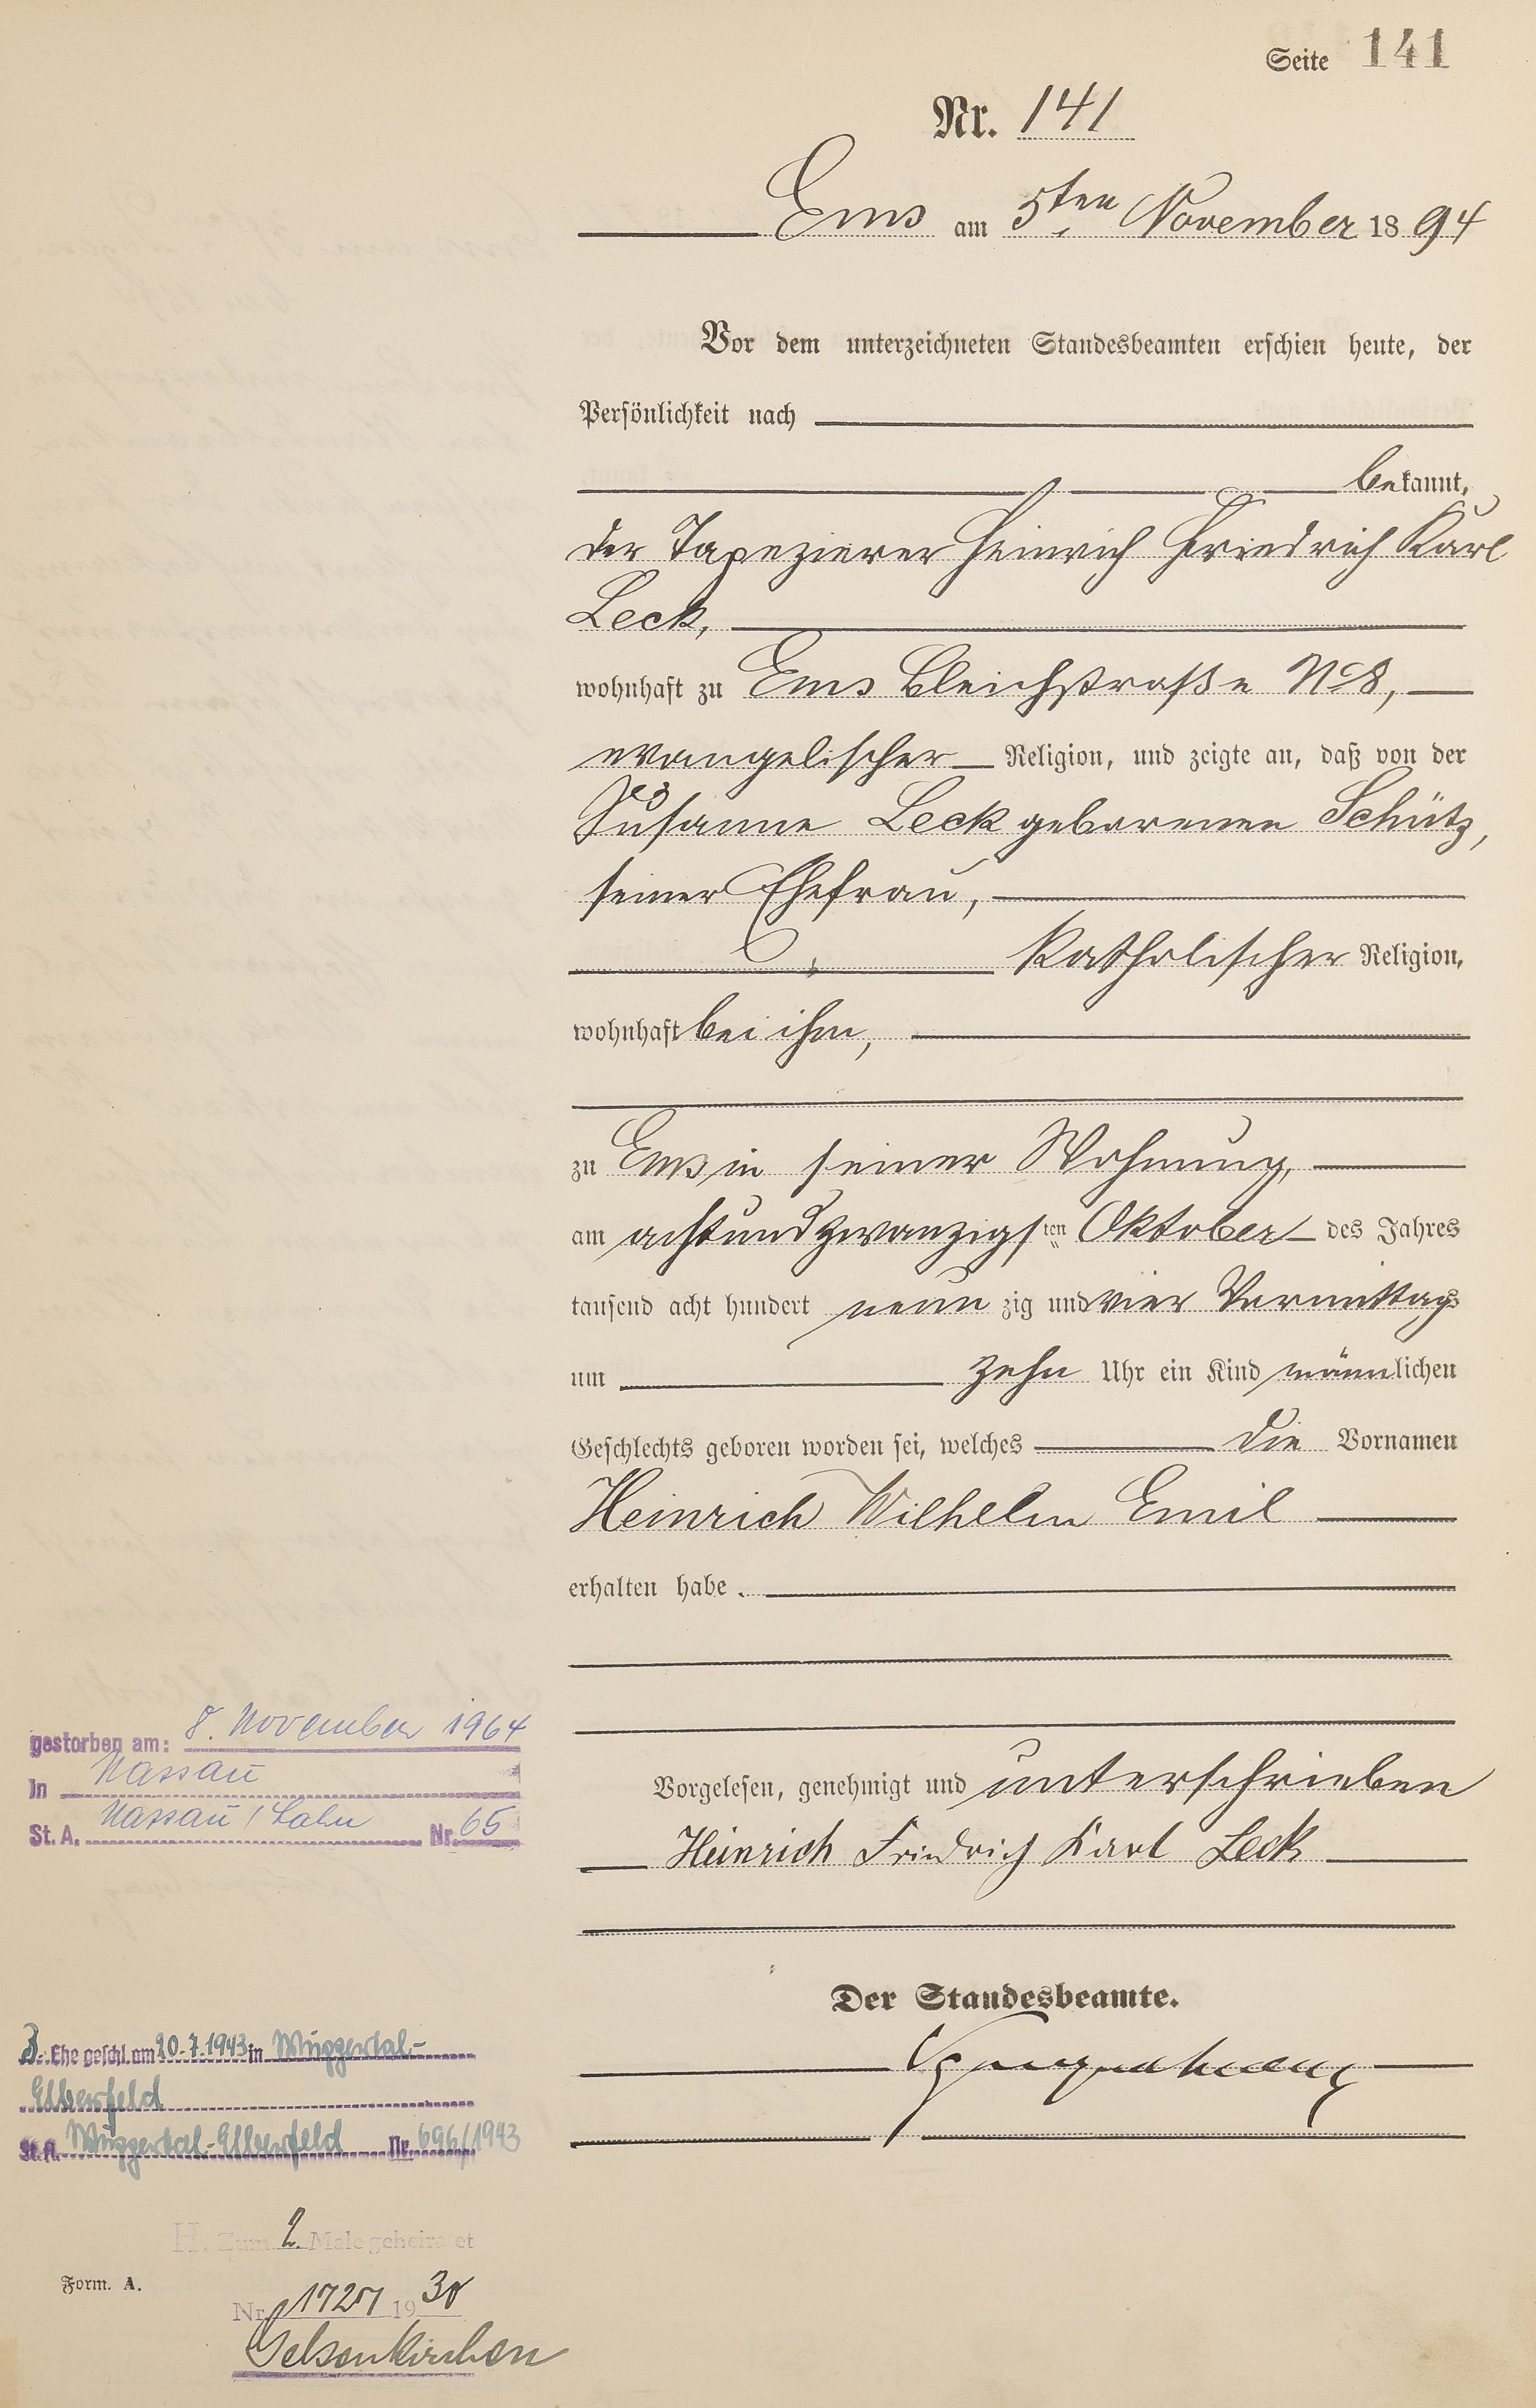 Seite 141
Nr. 141
Ems am 5ten November 1894
Vor dem unterzeichneten Standesbeamten erschien heute, der
Persönlichkeit nach
bekannt,
der Tapezierer Heinrich Friedrich Karl
Leck,
wohnhaft zu Ems Bleichstraße No 8,
evangelischer Religion, und zeigte an, daß von der
Susanne Leck geborenen Schütz,
seiner Ehefrau,
katholischer Religion,
wohnhaft bei ihm,
zu Ems in seiner Wohnung,
am achtundzwanzigsten Oktober des Jahres
tausend acht hundert neunzig und vier Vormittags
um zehn Uhr ein Kind männlichen
Geschlechts geboren worden sei, welches die Vornamen
Heinrich Wilhelm Emil
erhalten habe.
Vorgelesen, genehmigt und unterschrieben
Heinrich Friedrich Karl Leck
Der Standesbeamte.
gestorben am: 8. November 1964
In Nassau
St. A. Nassau / Lahn Nr. 65
3. Ehe geschl. am 20.7.1943 in Wuppertal-
Elberfeld
St. A. Wuppertal-Elberfeld Nr. 696/1943
H. Zum 2. Male geheiratet
Form. A.
Nr. 19 30
Gelsenkirchen